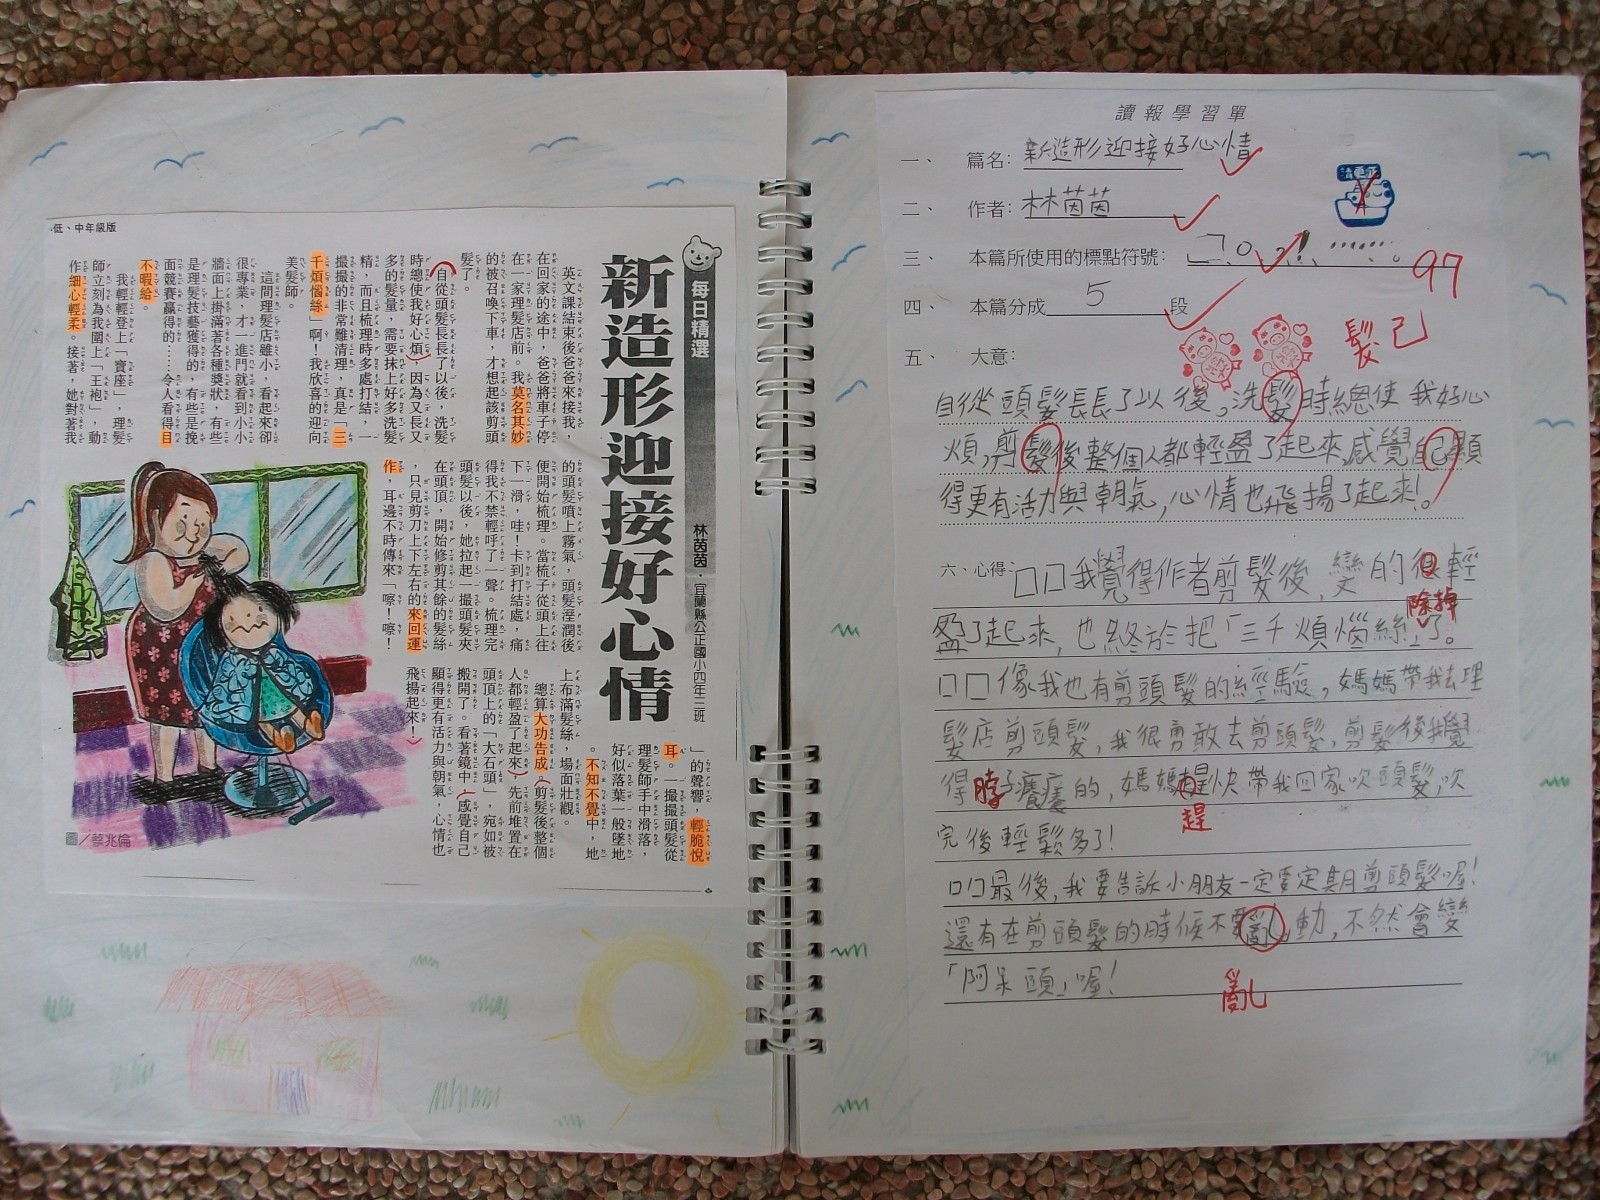 低、中年級版
每日精選
新造形迎接好心情
林茵茵．宜蘭縣公正國小四年三班
英文課結束後爸爸來接我，
在回家的途中，爸爸將車子停
在一家理髮店前。我莫名其妙
的被召喚下車，才想起該剪頭
髮了。
自從頭髮長長了以後，洗髮
時總使我好心煩，因為又長又
多的髮量，需要抹上好多洗髮
精，而且梳理時多處打結，一
撮撮的非常難清理，真是「三
千煩惱絲」啊！我欣喜的迎向
美髮師。
這間理髮店雖小，看起來卻
很專業，才一進門就看到小小
牆面上掛滿著各種獎狀，有些
是理髮技藝獲得的，有些是挽
面競賽贏得的……令人看得目
不暇給。
我輕輕登上「寶座」，理髮
師立刻為我圍上「王袍」，動
作細心輕柔。接著，她對著我
的頭髮噴上霧氣，頭髮溼潤後
便開始梳理。當梳子從頭上往
下一滑，哇！卡到打結處，痛
得我不禁輕呼了一聲。梳理完
頭髮以後，她拉起一撮頭髮夾
在頭頂，開始修剪其餘的髮絲
，只見剪刀上下左右的來回運
作，耳邊不時傳來「嚓！嚓！
」的聲響，輕脆悅
耳。一撮撮頭髮從
理髮師手中滑落，
好似落葉一般墜地
。不知不覺中，地
上布滿髮絲，場面壯觀。
總算大功告成。剪髮後整個
人都輕盈了起來，先前堆置在
頭頂上的「大石頭」，宛如被
搬開了。看著鏡中，感覺自己
顯得更有活力與朝氣，心情也
飛揚起來！
圖／蔡兆倫
讀報學習單
一、 篇名：新造形迎接好心情
二、 作者：林茵茵
三、 本篇所使用的標點符號：
97
四、 本篇分成5段
髮 己
五、 大意：
自從頭髮長長了以後，洗髮時總使我好心
煩，剪髮後整個人都輕盈了起來，感覺自己顯
得更有活力與朝氣，心情也飛揚了起來！。
六、心得：口口我覺得作者剪髮後，變的很輕
除掉
盈了起來，也終於把「三千煩惱絲」了。
口口像我也有剪頭髮的經驗，媽媽帶我去理
髮店剪頭髮，我很勇敢去剪頭髮，剪髮後我覺
得脖子癢癢的，媽媽趕快帶我回家吹頭髮，吹
趕
完後輕鬆多了！
口口最後，我要告訴小朋友一定要定期剪頭髮喔！
還有在剪頭髮的時候不要亂動，不然會變
「阿呆頭」喔！
亂